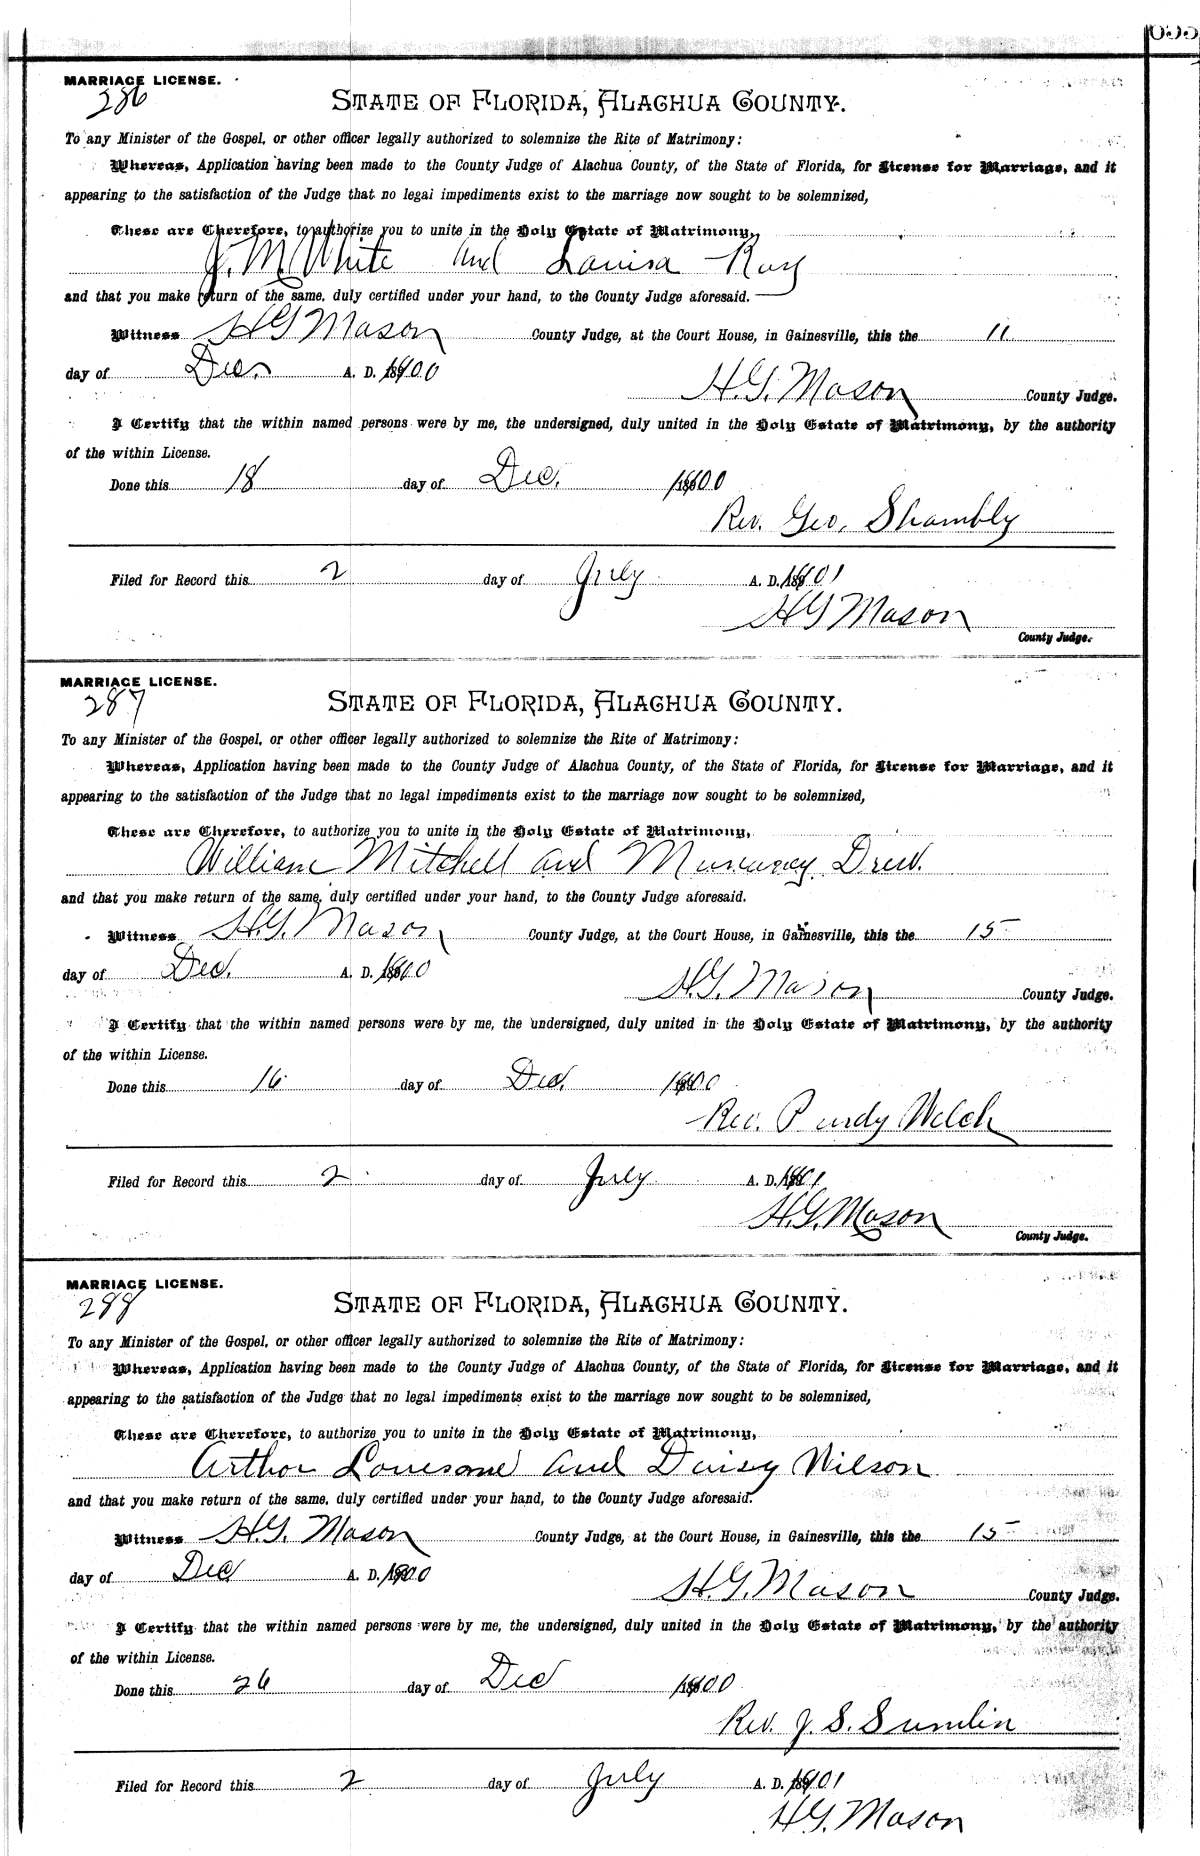 MARRIAGE LICENSE.
286
STATE OF FLORIDA, ALACHUA COUNTY.
To any Minister of the Gospel, or other officer legally authorized to solemnize the Rite of Matrimony:
Whereas, Application having been made to the County Judge of Alachua County, of the State of Florida, for License for Marriage, and it
appearing to the satisfaction of the Judge that no legal impediments exist to the marriage now sought to be solemnized,
These are Therefore, to authorize you to unite in the Holy Estate of Matrimony,
J. M. White and Louisa Ray
and that you make return of the same, duly certified under your hand, to the County Judge aforesaid.
Witness H G Mason County Judge, at the Court House, in Gainesville, this the 11
day of Dec. A. D. 1900
H. G. Mason County Judge.
I Certify that the within named persons were by me, the undersigned, duly united in the Holy Estate of Matrimony, by the authority
of the within License.
Done this 18 day of Dec. 1900
Rev. Geo. Shambly
Filed for Record this 2 day of July A. D. 1901
H G Mason
County Judge.
MARRIAGE LICENSE.
287
STATE OF FLORIDA, ALACHUA COUNTY.
To any Minister of the Gospel, or other officer legally authorized to solemnize the Rite of Matrimony:
Whereas, Application having been made to the County Judge of Alachua County, of the State of Florida, for License for Marriage, and it
appearing to the satisfaction of the Judge that no legal impediments exist to the marriage now sought to be solemnized,
These are Therefore, to authorize you to unite in the Holy Estate of Matrimony,
William Mitchell and Drew.
and that you make return of the same, duly certified under your hand, to the County Judge aforesaid.
Witness H. G. Mason County Judge, at the Court House, in Gainesville, this the 15
day of Dec. A. D. 1900
H. G. Mason County Judge.
I Certify that the within named persons were by me, the undersigned, duly united in the Holy Estate of Matrimony, by the authority
of the within License.
Done this 16 day of Dec. 1900
Rev. Purdy Welch
Filed for Record this 2 day of July A. D. 1901
H. G. Mason
County Judge.
MARRIAGE LICENSE.
288
STATE OF FLORIDA, ALACHUA COUNTY.
To any Minister of the Gospel, or other officer legally authorized to solemnize the Rite of Matrimony:
Whereas, Application having been made to the County Judge of Alachua County, of the State of Florida, for License for Marriage, and it
appearing to the satisfaction of the Judge that no legal impediments exist to the marriage now sought to be solemnized,
These are Therefore, to authorize you to unite in the Holy Estate of Matrimony,
Arthor Lonesome and Daisy Wilson
and that you make return of the same, duly certified under your hand, to the County Judge aforesaid.
Witness H. G. Mason County Judge, at the Court House, in Gainesville, this the 15
day of Dec A. D. 1900
H. G. Mason County Judge.
I Certify that the within named persons were by me, the undersigned, duly united in the Holy Estate of Matrimony, by the authority
of the within License.
Done this 26 day of Dec 1900
Rev. J. S. Sumlin
Filed for Record this 2 day of July A. D. 1901
H. G. Mason